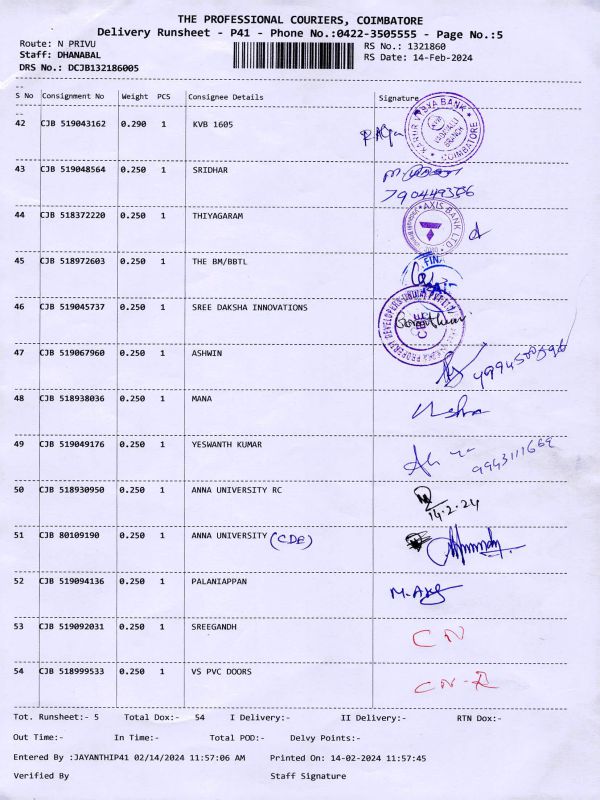 THE PROFESSIONAL COURIERS, COIMBATORE
Delivery Runsheet - P41 - Phone No.:0422-3505555 - Page No.:5
Route: N PRIVU RS No.: 1321860
Staff: DHANABAL RS Date: 14-Feb-2024
DRS No.: DCJB132186005
S No Consignment No Weight PCS Consignee Details Signature
42 CJB 519043162 0.290 1 KVB 1605
KARUR VYSYA BANK COIMBATORE
43 CJB 519048564 0.250 1 SRIDHAR
44 CJB 518372220 0.250 1 THIYAGARAM
AXIS BANK LTD
45 CJB 518972603 0.250 1 THE BM/BBTL
FINA
46 CJB 519045737 0.250 1 SREE DAKSHA INNOVATIONS
47 CJB 519067960 0.250 1 ASHWIN
48 CJB 518938036 0.250 1 MANA
49 CJB 519049176 0.250 1 YESWANTH KUMAR
9943111669
50 CJB 518930950 0.250 1 ANNA UNIVERSITY RC
14.2.24
51 CJB 80109190 0.250 1 ANNA UNIVERSITY (CDE)
52 CJB 519094136 0.250 1 PALANIAPPAN
53 CJB 519092031 0.250 1 SREEGANDH CN
54 CJB 518999533 0.250 1 VS PVC DOORS CN-R
Tot. Runsheet:- 5 Total Dox:- 54 I Delivery:- II Delivery:- RTN Dox:-
Out Time:- In Time:- Total POD:- Delvy Points:-
Entered By :JAYANTHIP41 02/14/2024 11:57:06 AM Printed On: 14-02-2024 11:57:45
Verified By Staff Signature